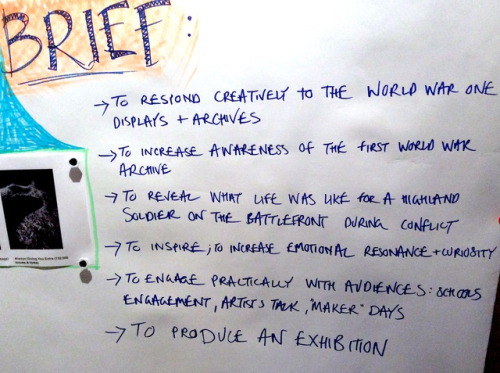 BRIEF:
→ TO RESPOND CREATIVELY TO THE WORLD WAR ONE
DISPLAYS + ARCHIVES
→ TO INCREASE AWARENESS OF THE FIRST WORLD WAR
ARCHIVE
→ TO REVEAL WHAT LIFE WAS LIKE FOR A HIGHLAND
SOLDIER ON THE BATTLEFRONT DURING CONFLICT
→ TO INSPIRE, TO INCREASE EMOTIONAL RESONANCE + CURIOSITY
→ TO ENGAGE PRACTICALLY WITH AUDIENCES: SCHOOLS
ENGAGEMENT, ARTIST'S TALK, "MAKER" DAYS
→ TO PRODUCE AN EXHIBITION